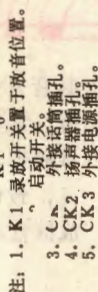 注：1. K1 录放开关置于放音位置。
启动开关。
3. 外接话筒插孔。
4. CK2 扬声器插孔。
5. CK3 外接电源插孔。